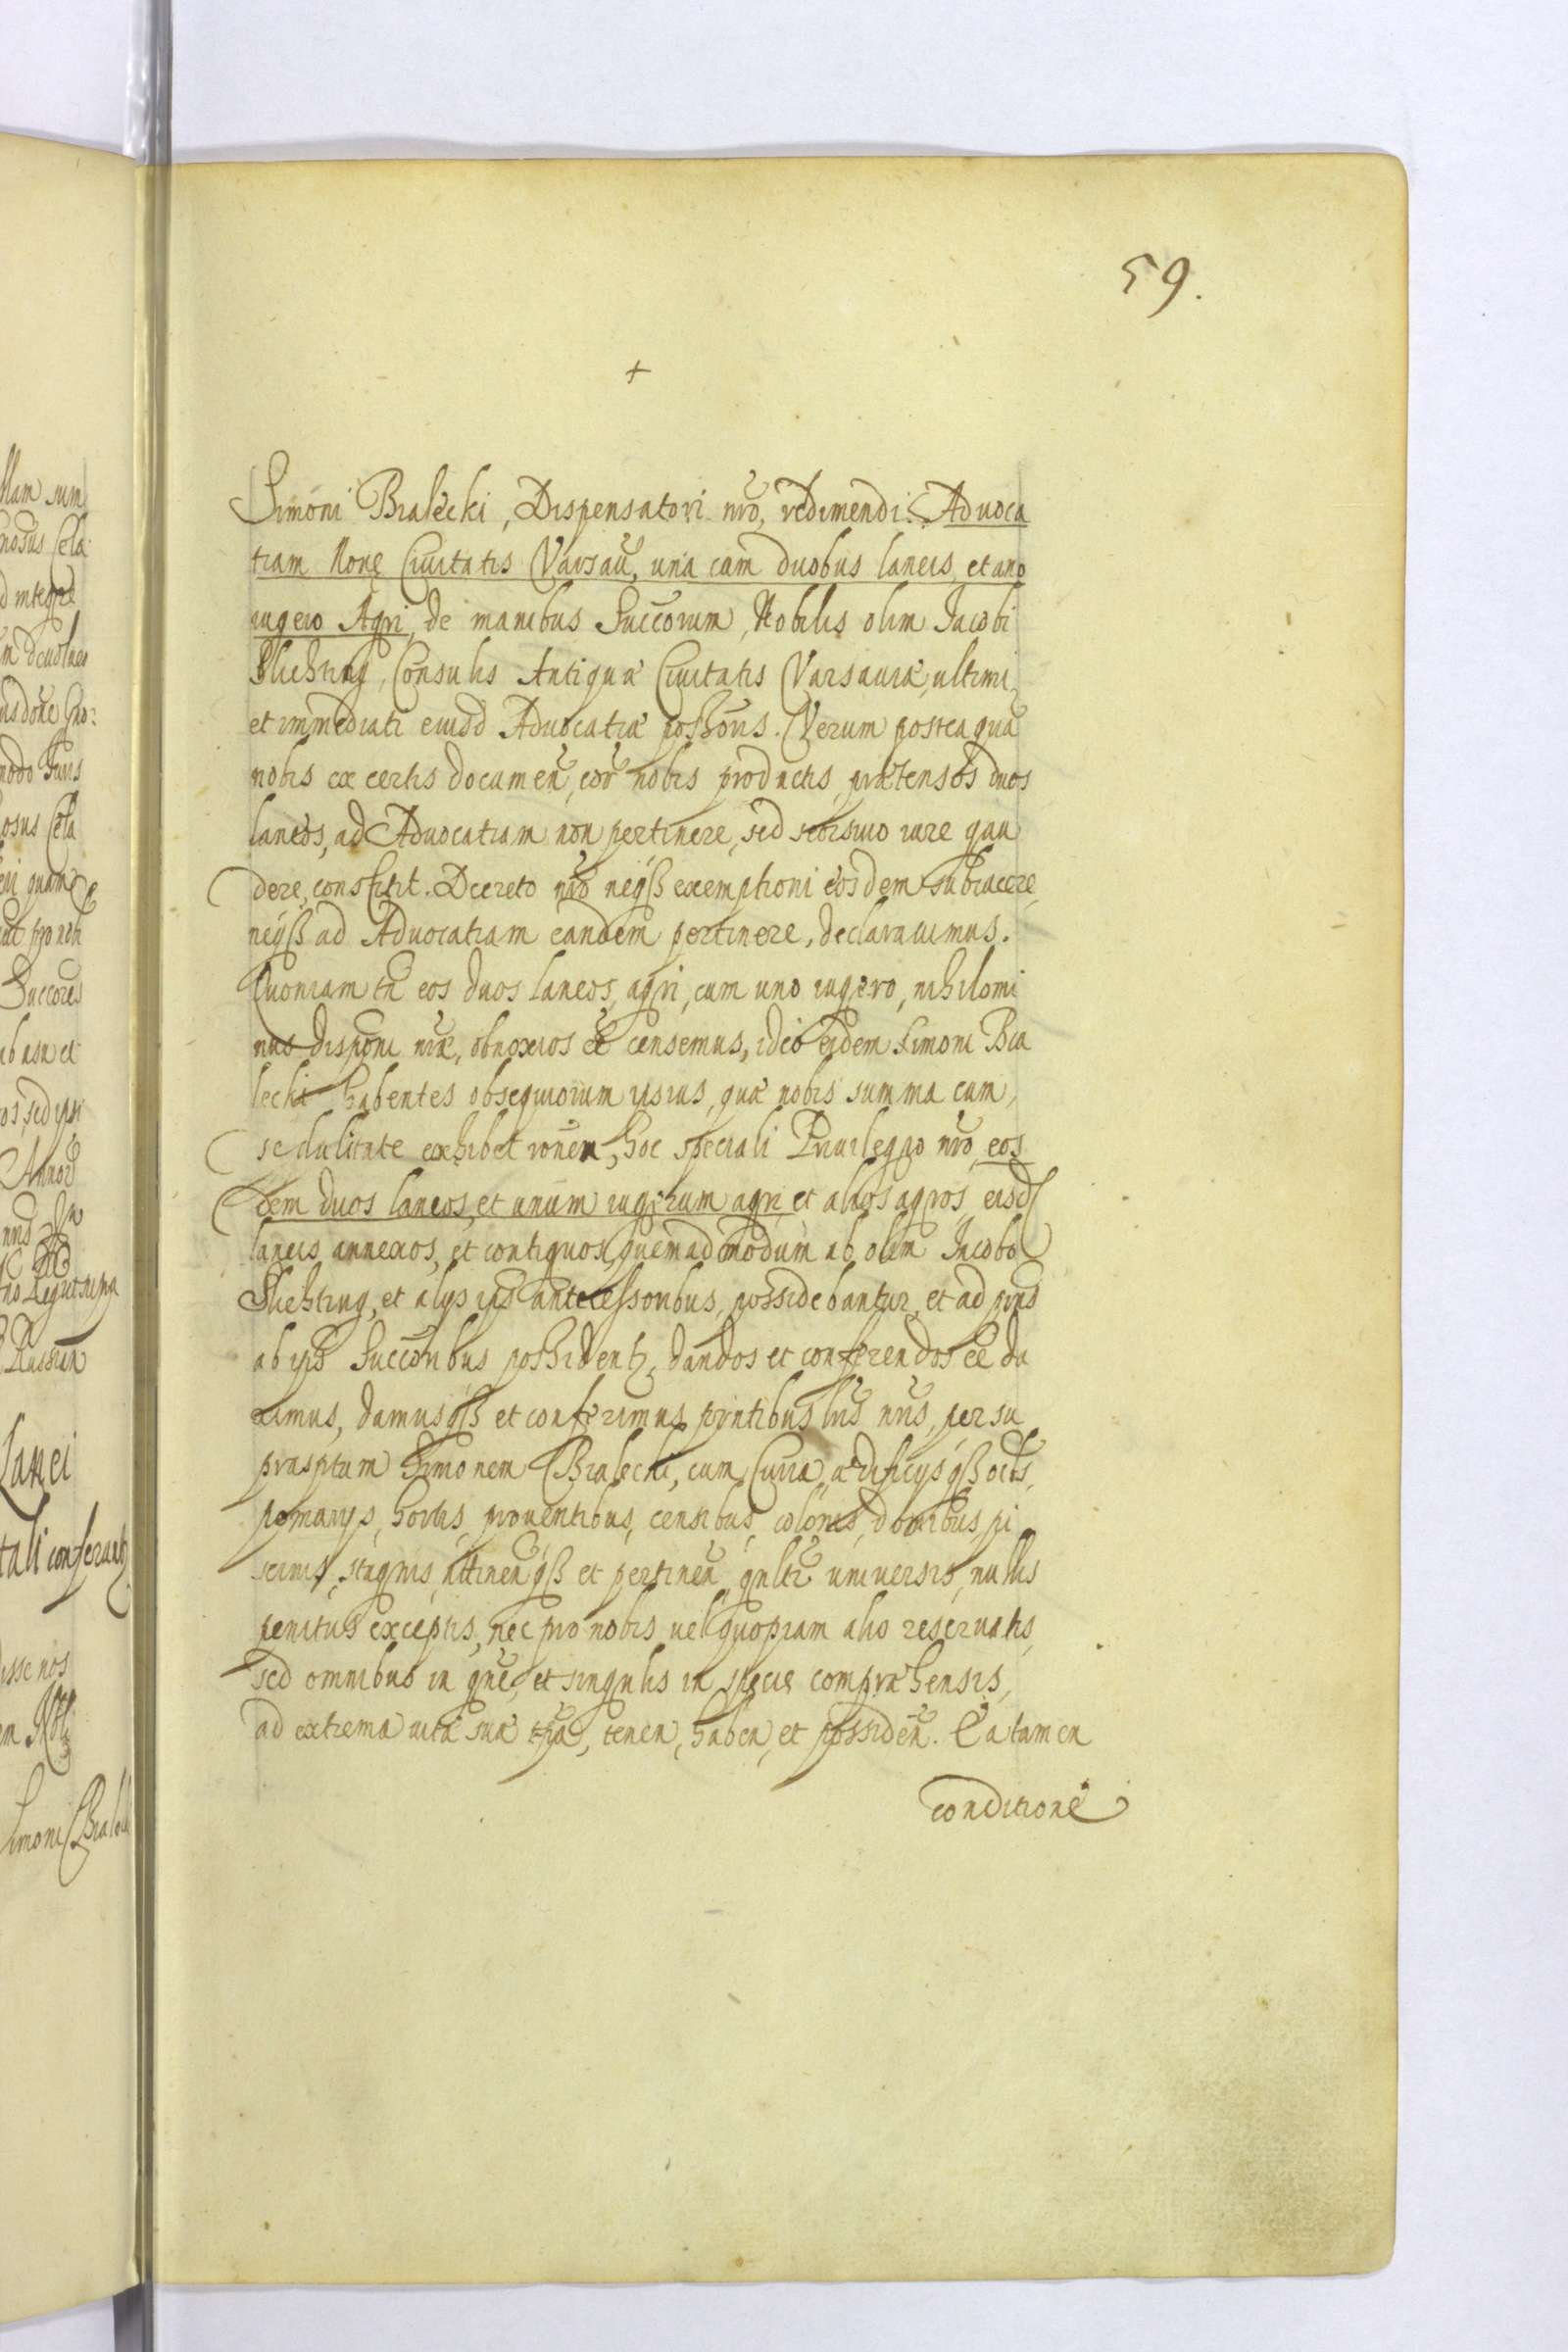 59.
+
Simoni Bialecki, Dispensatori nro, redimendi Aduoca
tiam Nove Ciuitatis Varsau, una cum duobus laneis, et uno
iugero Agri, de manibus Succorum, Nobilis olim Jacobi
Slichting, Consulis Antiquæ Ciuitatis Varsauiæ, ultimi,
et immediati eiusd Aduocatiæ posszoris. Verum posteaqua
nobis ex certis documen, cor nobis productis, prætensos duos
laneos, ad Aduocatiam non pertinere, sed seorsiuo iure gau
dere, constitit. Decreto nro neqß exemptioni eosdem subiacere,
neqß ad Aduocatiam eandem pertinere, declarauimus.
Quoniam tn eos duos laneos, agri, cum uno iugero, nihilomi
nus disponi nræ, obnoxios ee censemus, ideo eidem Simoni Bia
lecki habentes obsequiorum ipsius, quæ nobis summa cum,
sedulitate exhibet ronem, hoc speciali Priuilegio nro, eos
dem duos laneos, et unum iugerum agri et alios agros eisd
laneis annexos, et contiguos, quemadmodum ab olim Jacobo
Slichting, et alys ips antecessoribus, possidebantur, et ad pns
ab ips Succoribus possidentz, dandos et conferendos ee du
ximus, damusqß et conferimus pntibus lris nris, per su
prasptum Simonem Bialecki, cum Curia, ædificysqß oibs,
pomarys, hortis, prouentibus, censibus, colonis, domibus, pi
scinis, stagnis, attinenqß et pertinen, gnltr uniuersis, nullis
penitus exceptis, nec pro nobis uel quopiam alio reseruatis,
sed omnibus in gne, et singulis in specie compræhensis,
ad extrema uitæ suæ tpa, tenen, haben, et possiden. Ea tamen
conditione